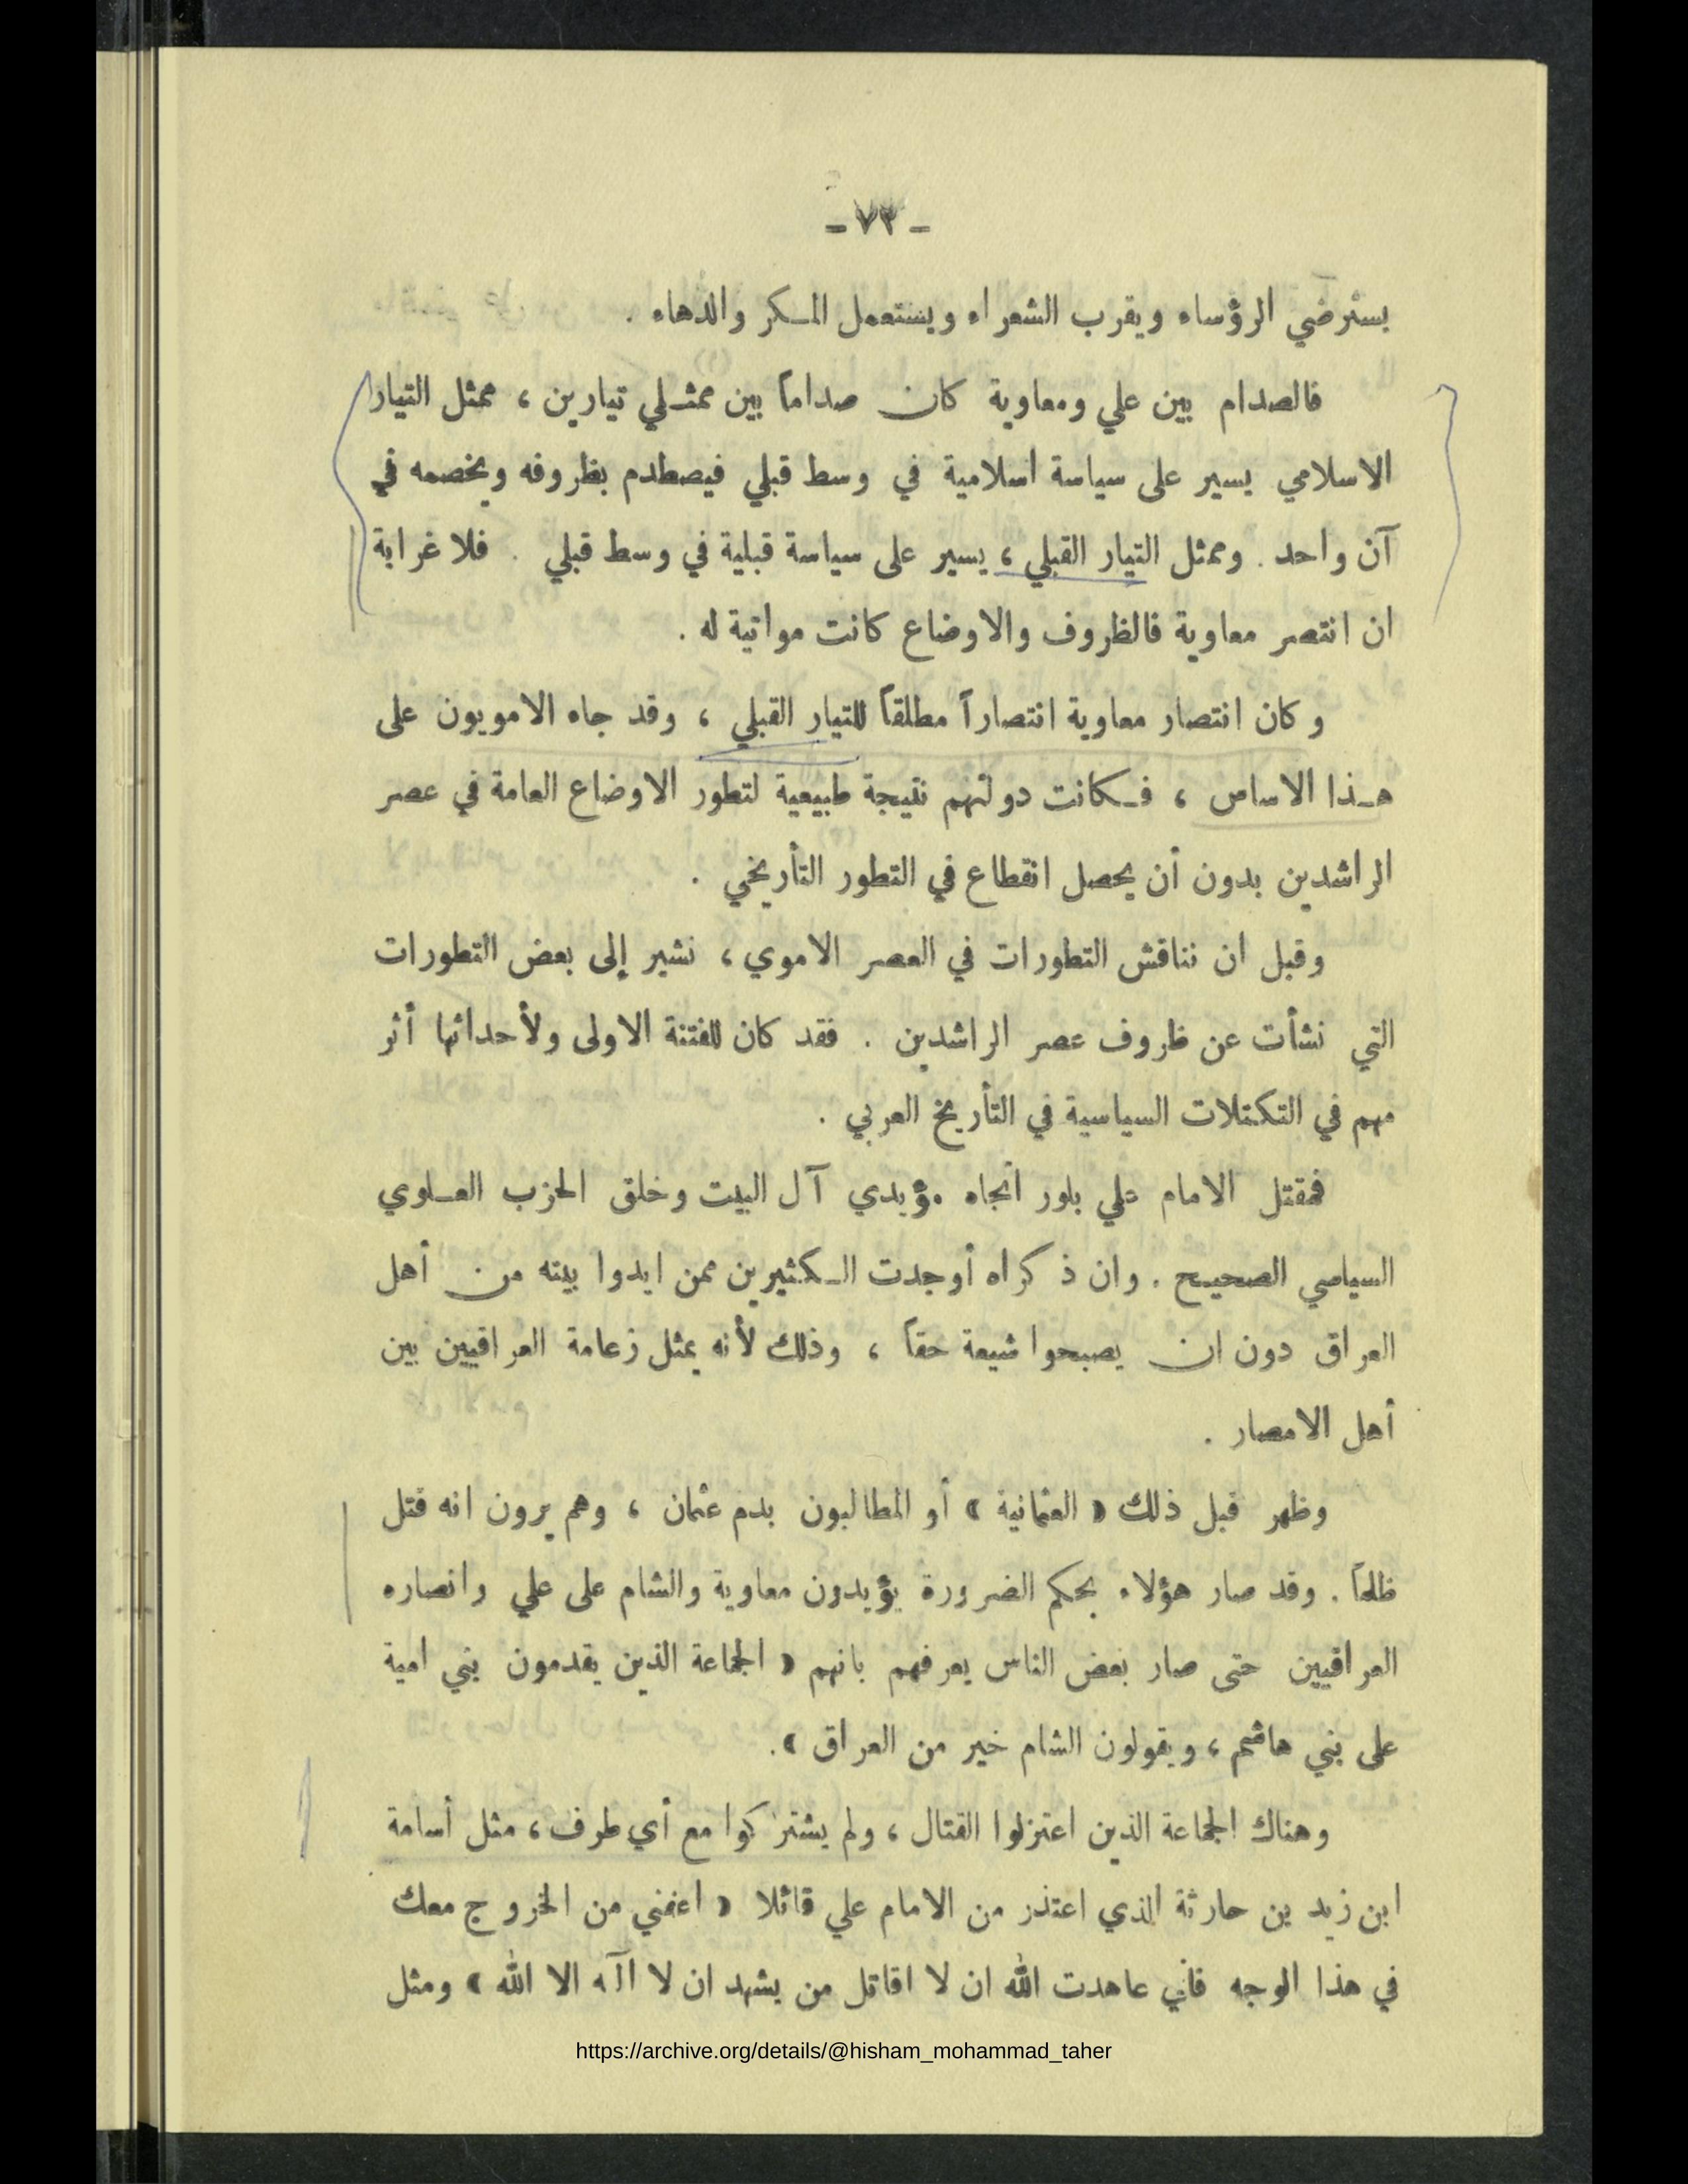 - ٧٣ -
يسترضي الرؤساء ويقرب الشعراء ويستعمل المكر والدهاء .
فالصدام بين علي ومعاوية كان صداماً بين ممثلي تيارين ، ممثل التيار
الاسلامي يسير على سياسة اسلامية في وسط قبلي فيصطدم بظروفه وبخصمه في
آن واحد . وممثل التيار القبلي ، يسير على سياسة قبلية في وسط قبلي . فلا غرابة
ان انتصر معاوية فالظروف والاوضاع كانت مواتية له .
وكان انتصار معاوية انتصاراً مطلقاً للتيار القبلي ، وقد جاء الامويون على
هذا الاساس ، فكانت دولتهم نتيجة طبيعية لتطور الاوضاع العامة في عصر
الراشدين بدون أن يحصل انقطاع في التطور التأريخي .
وقبل ان نناقش التطورات في العصر الاموي ، نشير إلى بعض التطورات
التي نشأت عن ظروف عصر الراشدين . فقد كان للفتنة الاولى ولأحداثها أثر
مهم في التكتلات السياسية في التأريخ العربي .
فمقتل الامام علي بلور اتجاه مؤيدي آل البيت وخلق الحزب العلوي
السياسي الصحيح . وان ذكراه أوجدت الكثيرين ممن ايدوا بيته من أهل
العراق دون ان يصبحوا شيعة حقاً ، وذلك لأنه يمثل زعامة العراقيين بين
أهل الامصار .
وظهر قبل ذلك « العثمانية » أو المطالبون بدم عثمان ، وهم يرون انه قتل
ظلماً . وقد صار هؤلاء بحكم الضرورة يؤيدون معاوية والشام على علي وانصاره
العراقيين حتى صار بعض الناس يعرفهم بانهم « الجماعة الذين يقدمون بني امية
على بني هاشم ، ويقولون الشام خير من العراق » .
وهناك الجماعة الذين اعتزلوا القتال ، ولم يشتركوا مع أي طرف ، مثل أسامة
ابن زيد بن حارثة الذي اعتذر من الامام علي قائلا « اعفني من الخروج معك
في هذا الوجه فأني عاهدت الله ان لا اقاتل من يشهد ان لا اآه الا الله » ومثل
https://archive.org/details/@hisham_mohammad_taher